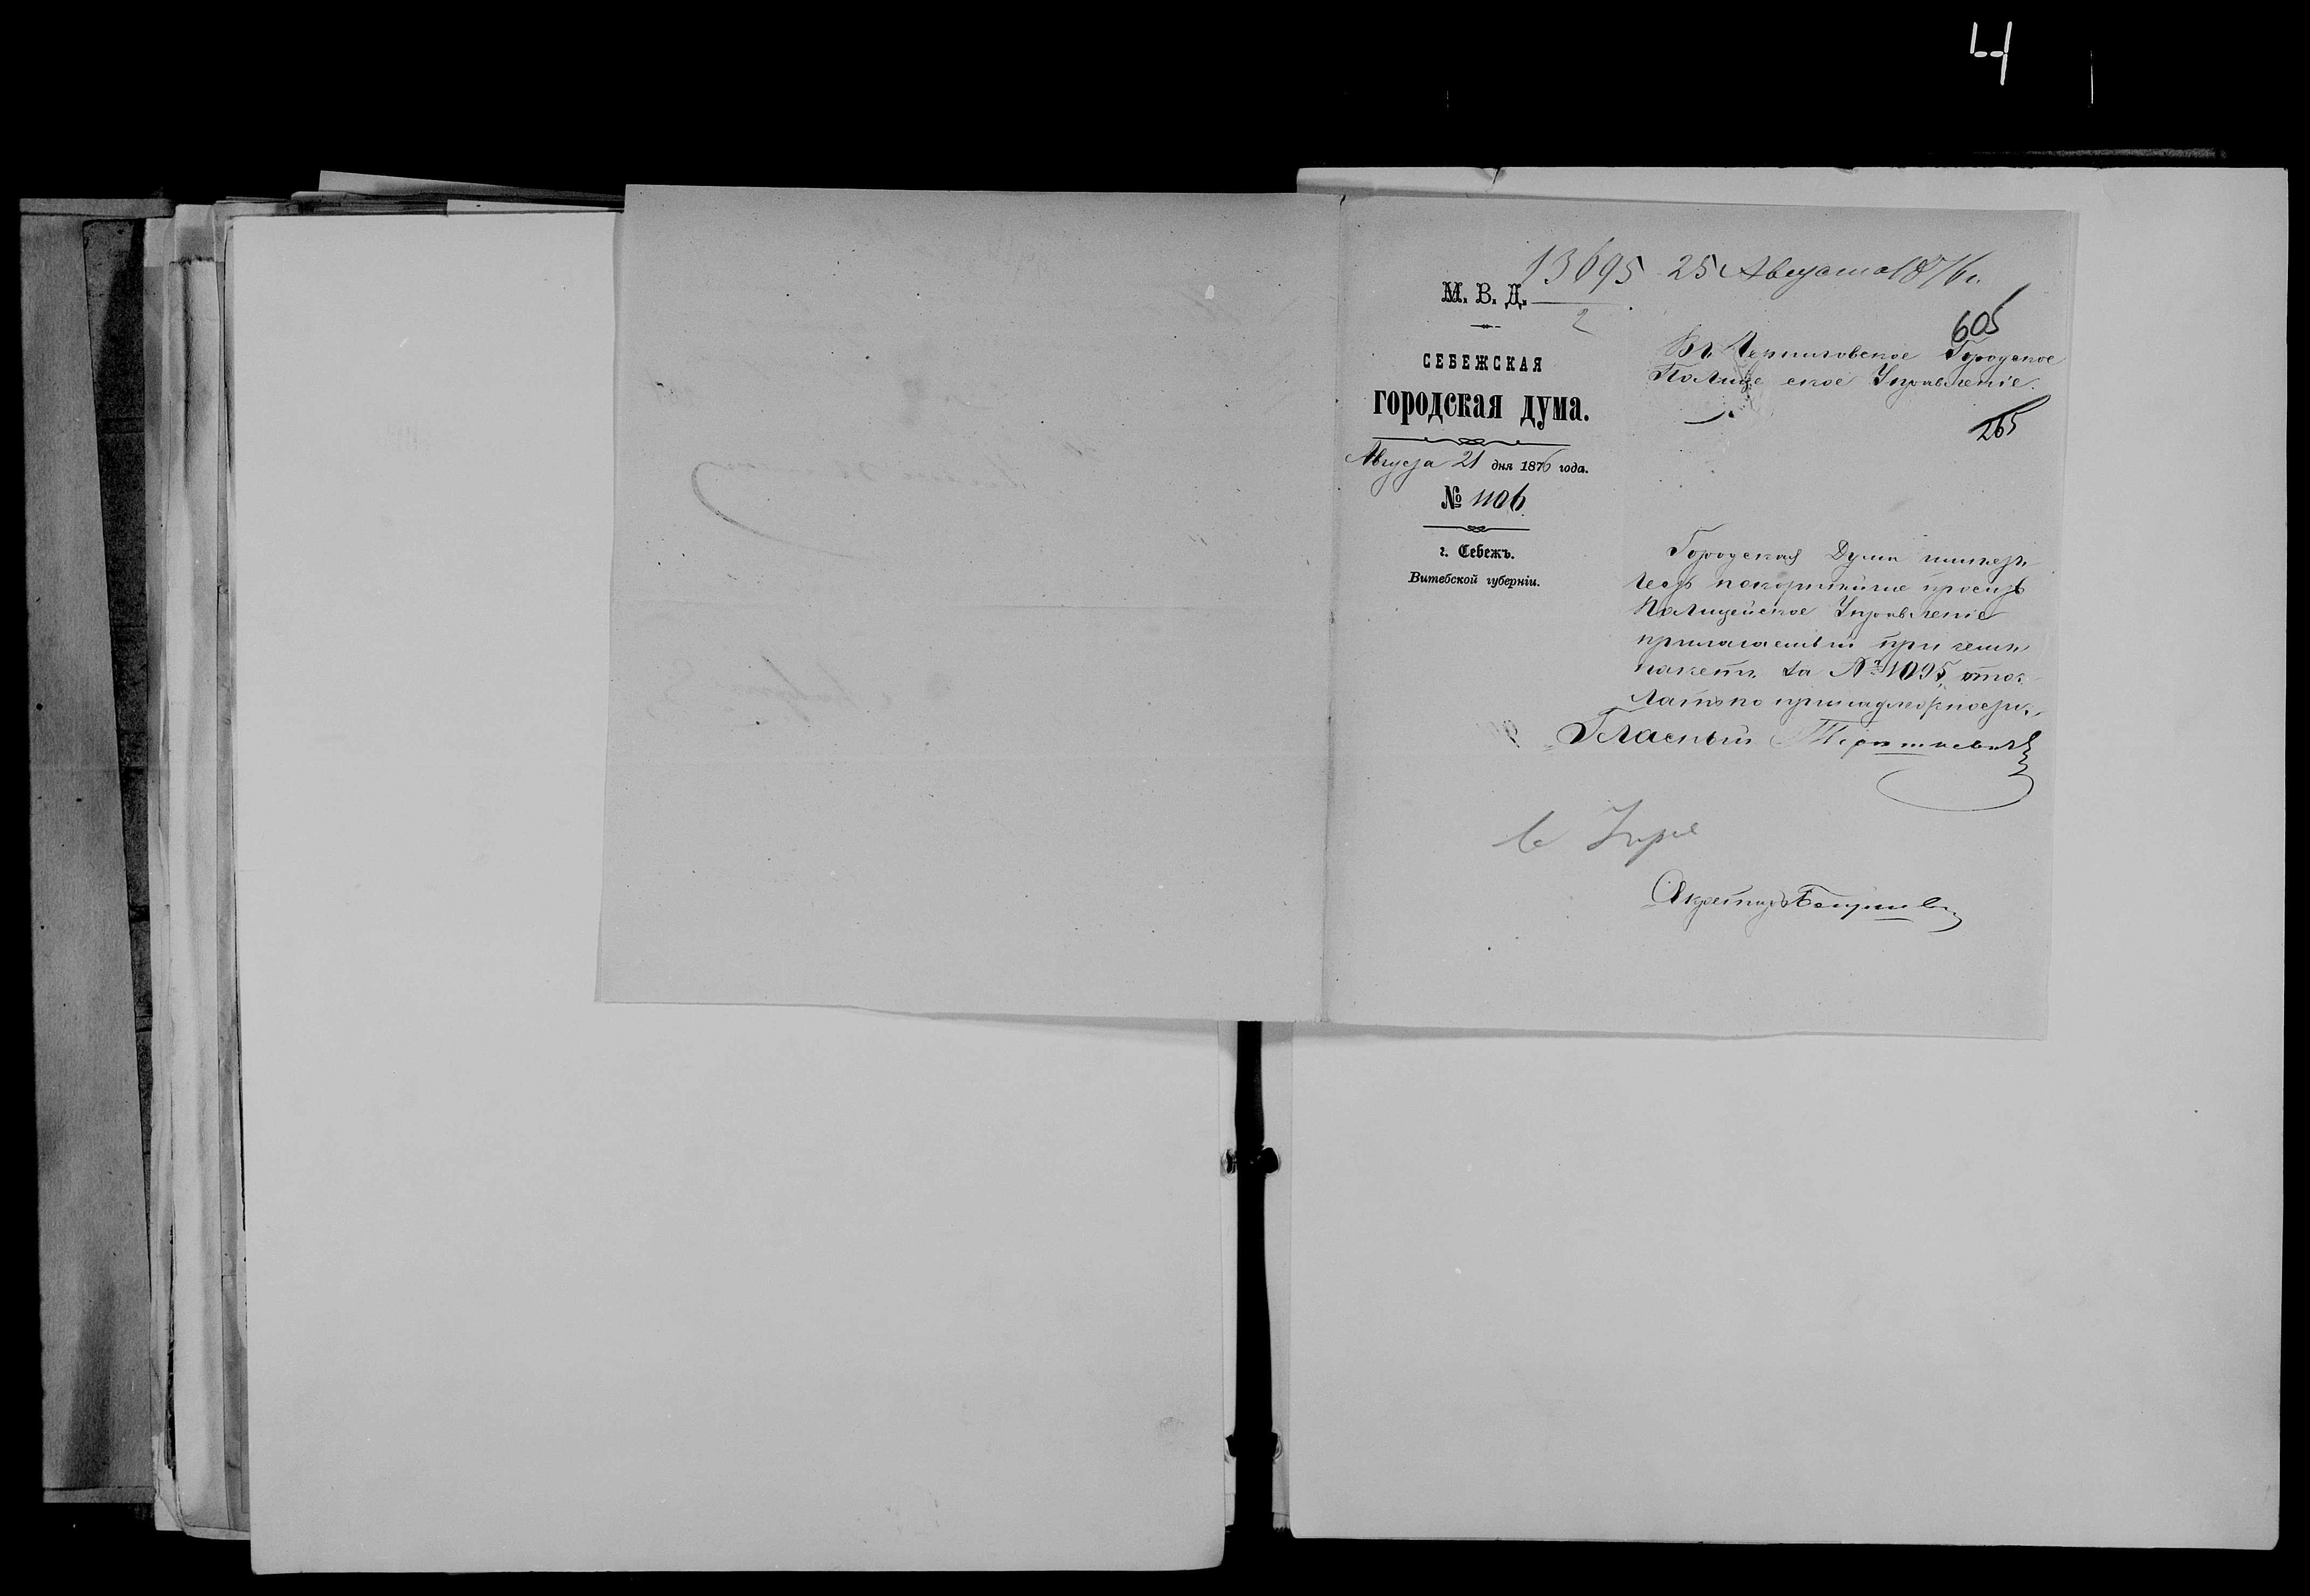 4
13695 25 Августа 1876 г.
2
М. В. Д.
605
СЕБЕЖСКАЯ
ГОРОДСКАЯ ДУМА.
Августа 21 дня 1876 года.
№ 1106
г. Себежъ.
Витебской губерніи.
Въ Черниговское Городское
Полицейское Управленіе.
265
Городская Дума имѣетъ
честь покорнѣйше просить
Полицейское Управленіе
прилагаемый при семъ
пакетъ за № 1095, отос-
лать по принадлежности.
Гласный
Секретарь